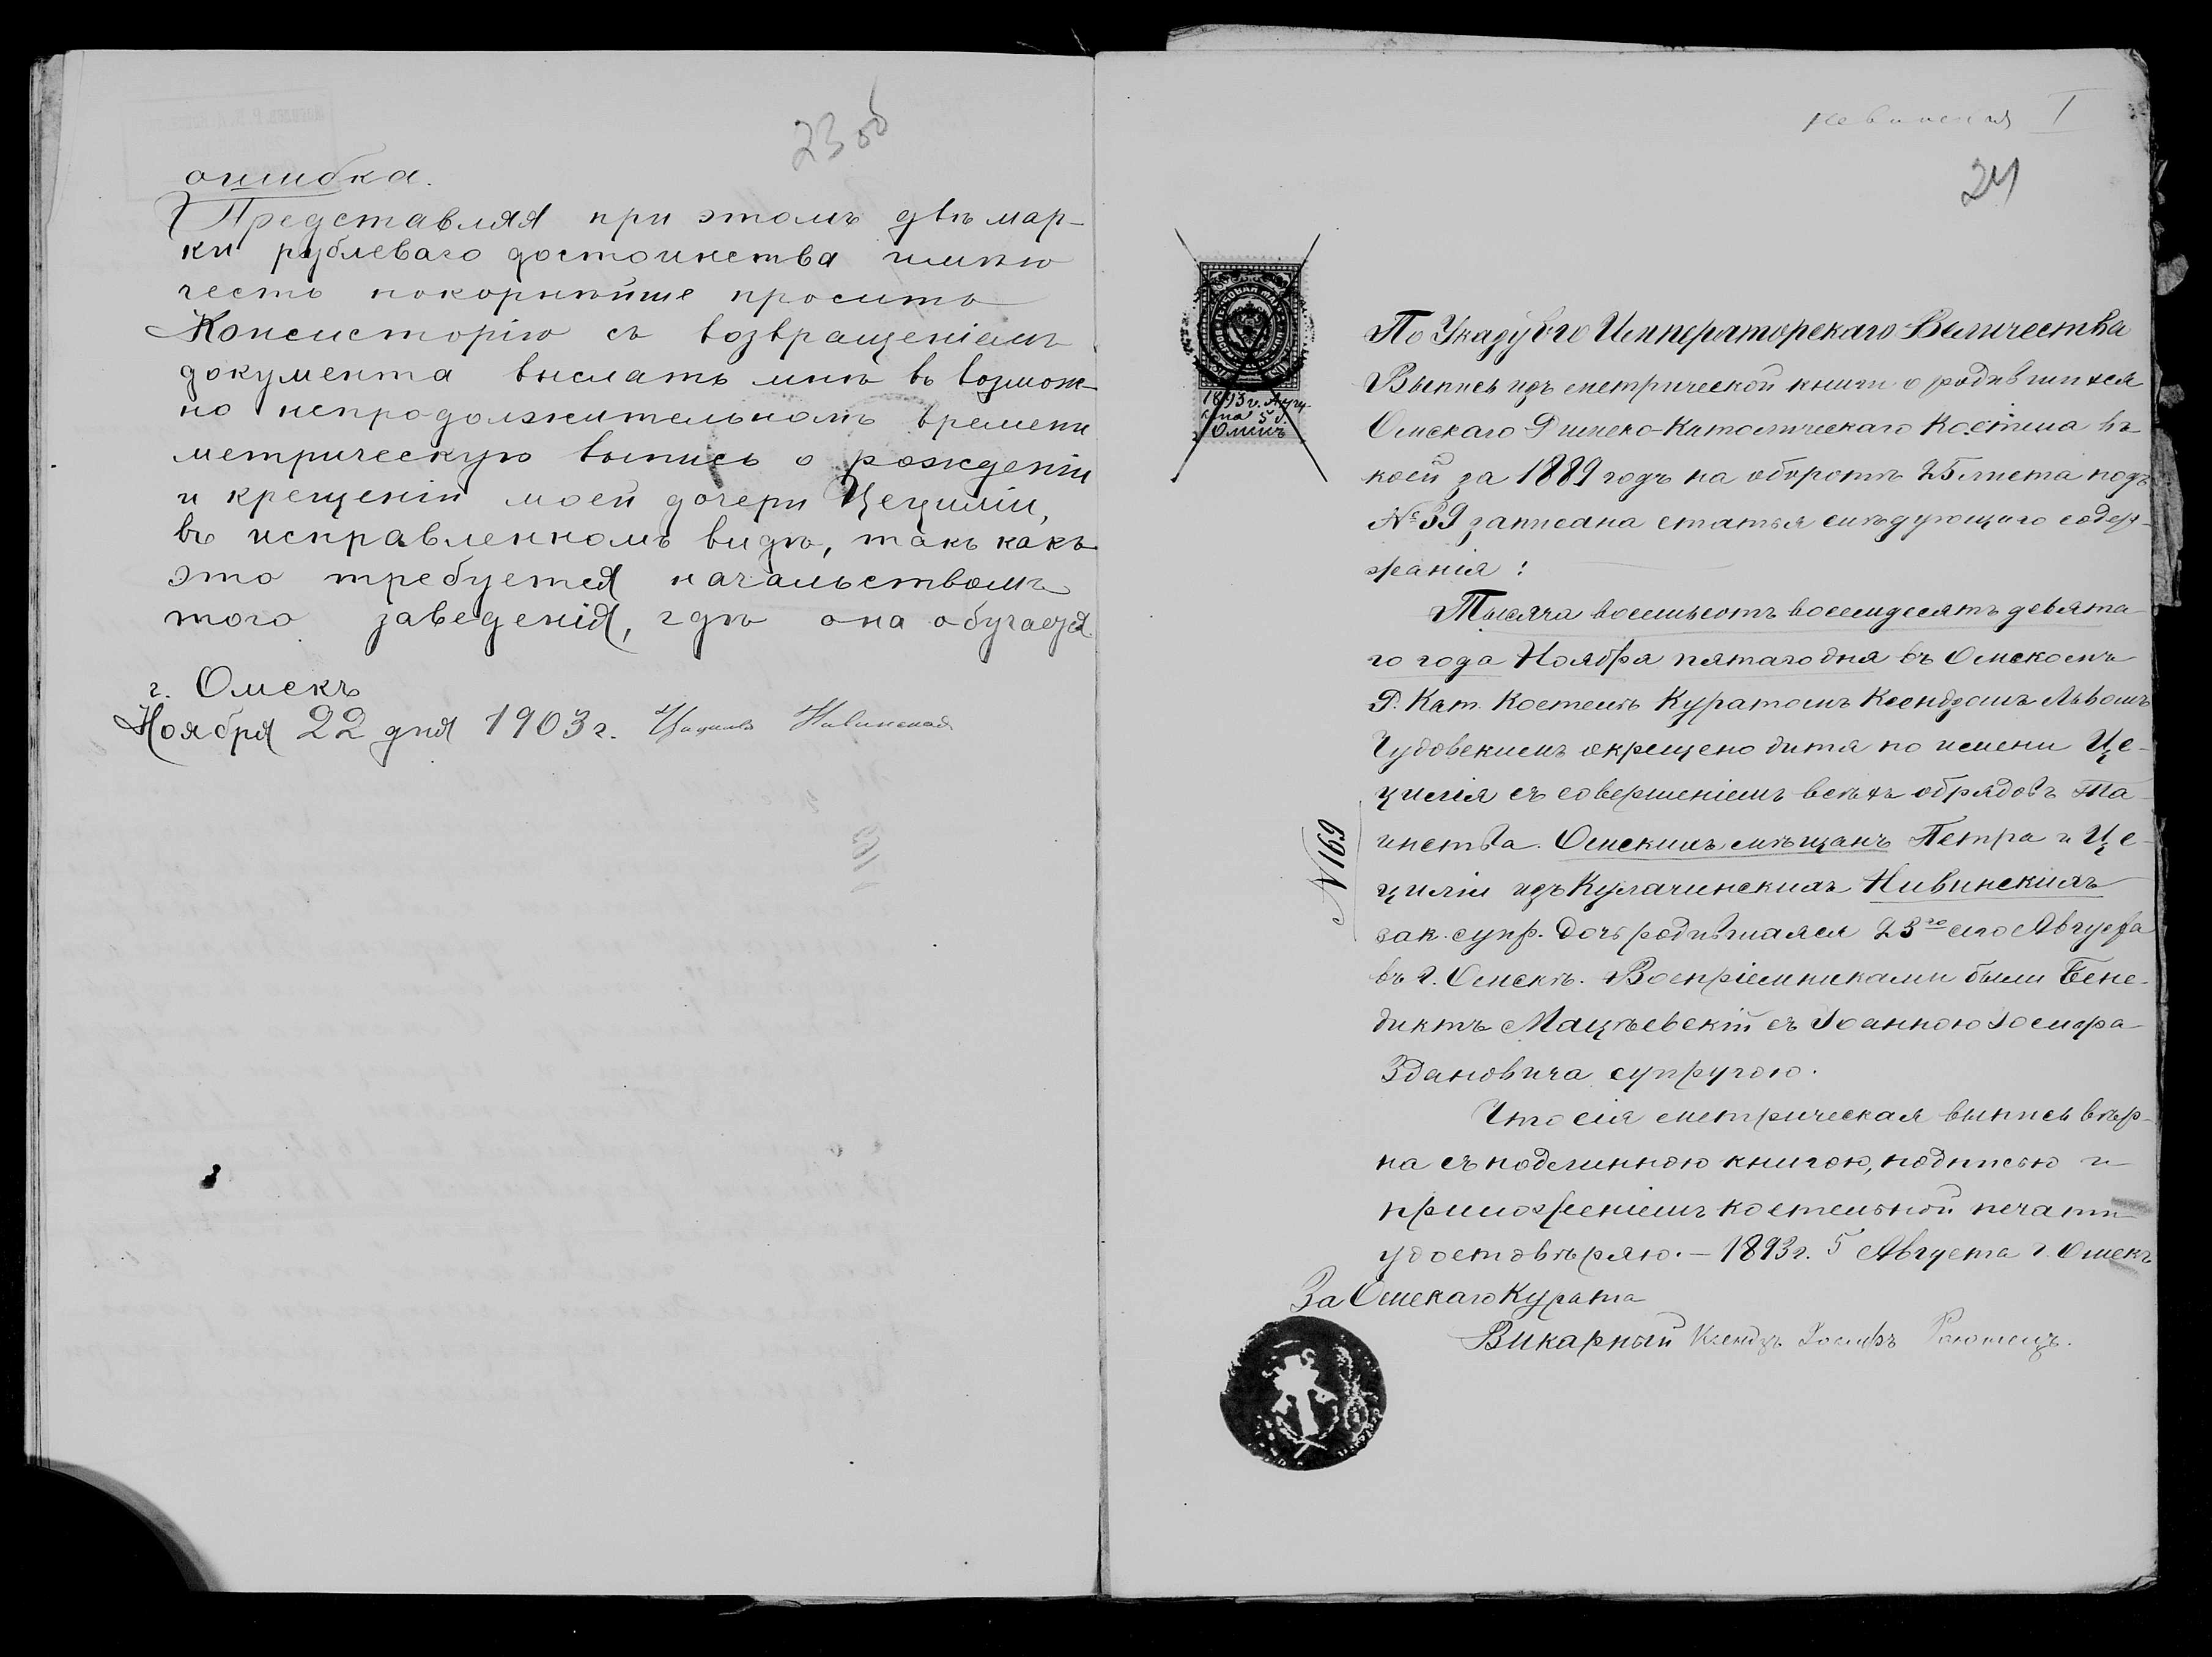 23 об
ошибка.
Представляя при этомъ двѣ мар-
ки рублеваго достоинства имѣю
честь покорнѣйше просить
Консисторію съ возвращеніемъ
документа выслать мнѣ въ возмож-
но непродолжительномъ времени
метрическую выпись о рожденіи
и крещеніи моей дочери Цециліи,
въ исправленномъ видѣ, такъ какъ
это требуется начальствомъ
того заведенія, гдѣ она обучается.
г. Омскъ
Ноября 22 дня 1903 г.
I
24
1893 г. Авгу-
ста 5 д.
Омскъ
По Указу Его Императорскаго Величества
Выпись изъ метрической книги о родившихся
Омскаго Римско-Католическаго Костела въ
коей за 1889 годъ на оборотѣ 25 листа подъ
№ 39 записана статья слѣдующаго содер-
жанія:
Тысяча восемьсотъ восемдесятъ девята-
го года Ноября пятаго дня въ Омскомъ
Р. Кат. Костелѣ Куратомъ Ксендзомъ Львомъ
Чудовскимъ окрещено дитя по имени Це-
цилія съ совершеніемъ всѣхъ обрядовъ Та-
инства. Омскихъ мѣщанъ Петра и Це-
циліи изъ Кулачинскихъ Нивинскихъ
зак. супр. дочь родившаяся 23го сего Августа
въ г. Омскѣ. Воспріемниками были Бене-
диктъ Мацѣевскій съ Іоанною Іосифа
Здановича супругою.
Что сія метрическая выпись вѣр-
на съ подлинною книгою, подписью и
приложеніемъ костельной печати
удостовѣряю. – 1893 г. 5 Августа г. Омскъ
№ 169
За Омскаго Курата
Викарный Ксендзъ Іосифъ